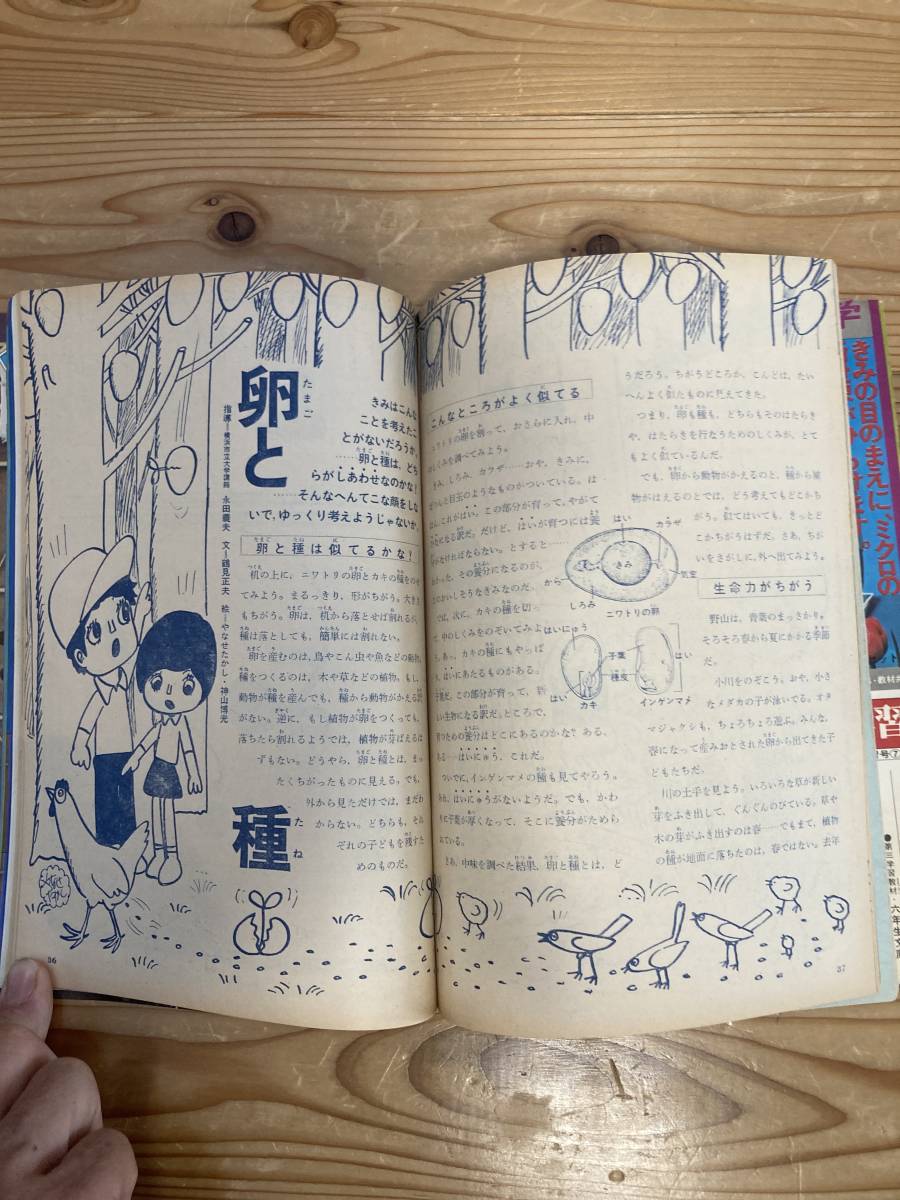 卵と
たまご
種
たね
指導ー横浜市立大学講師 永田義夫 文ー鶴見正夫 絵ーやなせたかし・神山博光
きみはこんな
ことを考えたこ
とがないだろうか。
……卵と種は、どち
らがしあわせなのかな!
……そんなへんてこな顔をしな
いで、ゆっくり考えようじゃないか。
卵と種は似てるかな!
机の上に、ニワトリの卵とカキの種をの
せてみよう。まるっきり、形がちがう。大きさ
もちがう。卵は、机から落とせば割れるが、
種は落としても、簡単には割れない。
卵を産むのは、鳥やこん虫や魚などの動物。
種をつくるのは、木や草などの植物。もし、
動物が種を産んでも、種から動物がかえる訳
がない。逆に、もし植物が卵をつくっても、
落ちたら割れるようでは、植物が芽ばえるは
ずもない。どうやら、卵と種とは、まっ
たくちがったものに見える。でも、
外から見ただけでは、まだわ
からない。どちらも、それ
ぞれの子どもを残すた
めのものだ。
やなせたかし
36
こんなところがよく似てる
ニワトリの卵を割って、おさらに入れ、中
のしくみを調べてみよう。
きみ、しろみ、カラザ……おや、きみに、
ぽつんと目玉のようなものがついている。は
はん、これがはい。この部分が育って、やがて
になる訳だ。だけど、はいが育つには養
がなければならない。とすると……
った、その養分になるのが、
おいしそうなきみなのだ。
では、次に、カキの種を切
中のしくみをのぞいてみよ
あっ、カキの種にもやっぱ
はいにあたるものがある。
子葉だ。この部分が育って、新
しい生物になる訳だ。ところで、
育つための養分はどこにあるのかな? ある、
ある……はいにゅう、これだ。
ついでに、インゲンマメの種も見てやろう。
おや、はいにゅうがないようだ。でも、かわ
りに子葉が厚くなって、そこに養分がためら
れている。
さあ、中味を調べた結果、卵と種とは、ど
はい
カラザ
から
きみ
気室
しろみ
ニワトリの卵
はいにゅう
子葉
はい
種皮
はい
カキ
インゲンマメ
うだろう。ちがうどころか、こんどは、たい
へんよく似たものに見えてきた。
つまり、卵も種も、どちらもそのはたらき
や、はたらきを行なうためのしくみが、とて
もよく似ているんだ。
でも、卵から動物がかえるのと、種から植
物がはえるのとでは、どう考えてもどこかち
がう。似てはいても、きっとど
こかちがうはずだ。さあ、ちが
いをさがしに、外へ出てみよう。
生命力がちがう
野山は、青葉のまっさかり。
そろそろ春から夏にかかる季節
だ。
小川をのぞこう。おや、小さ
なメダカの子が泳いでる。オタ
マジャクシも、ちょろちょろ遊ぶ。みんな、
春になって産みおとされた卵から出てきた子
どもたちだ。
川の土手を見よう。いろいろな草が新しい
芽をふき出して、ぐんぐんのびている。草や
木の芽がふき出すのは春……でもまて、植物
の種が地面に落ちたのは、春ではない。去年
37
学
きみの目のまえに、ミクロの
習
●第三学習教材
六年生